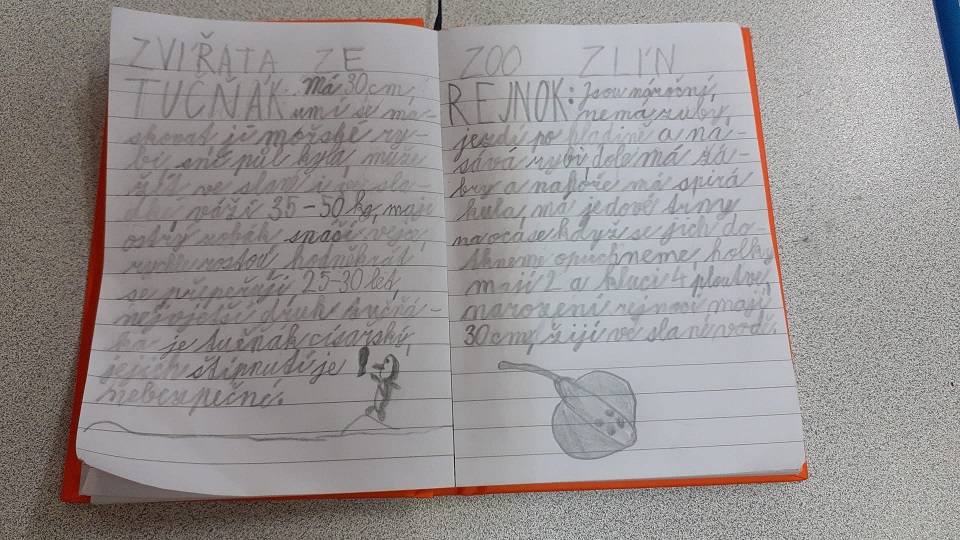 ZVÍŘATA ZE ZOO ZLÍN
TUČŇÁK: Má 30 cm,
umí se ma-
skovat, jí mořské ry-
by, sní půl kýla, může
žít ve slané i ve sla-
dké, váží 35-50 kg, mají
ostrý zobák snáší vejce,
rychle rostou, hodněkrát
se přepeřují 25-30 let,
největší druh tučňá-
ka je tučňák císařský,
jejich štípnutí je
nebezpečné.
REJNOK: Jsou nároční,
nemá zuby,
jezdí po hladině a na-
sává ryby, dole má žá-
bry a nahoře má spirá
kula, má jedové trny
na ocase když se jich do-
tkneme opuchneme, holky
mají 2 a kluci 4 ploutve,
narození rejnoci mají
30 cm, žijí ve slané vodě.